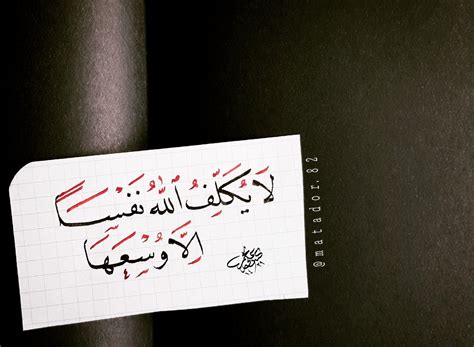 لَا يُكَلِّفُ ٱللَّهُ نَفْسًا
إِلَّا وُسْعَهَا
@matador.82